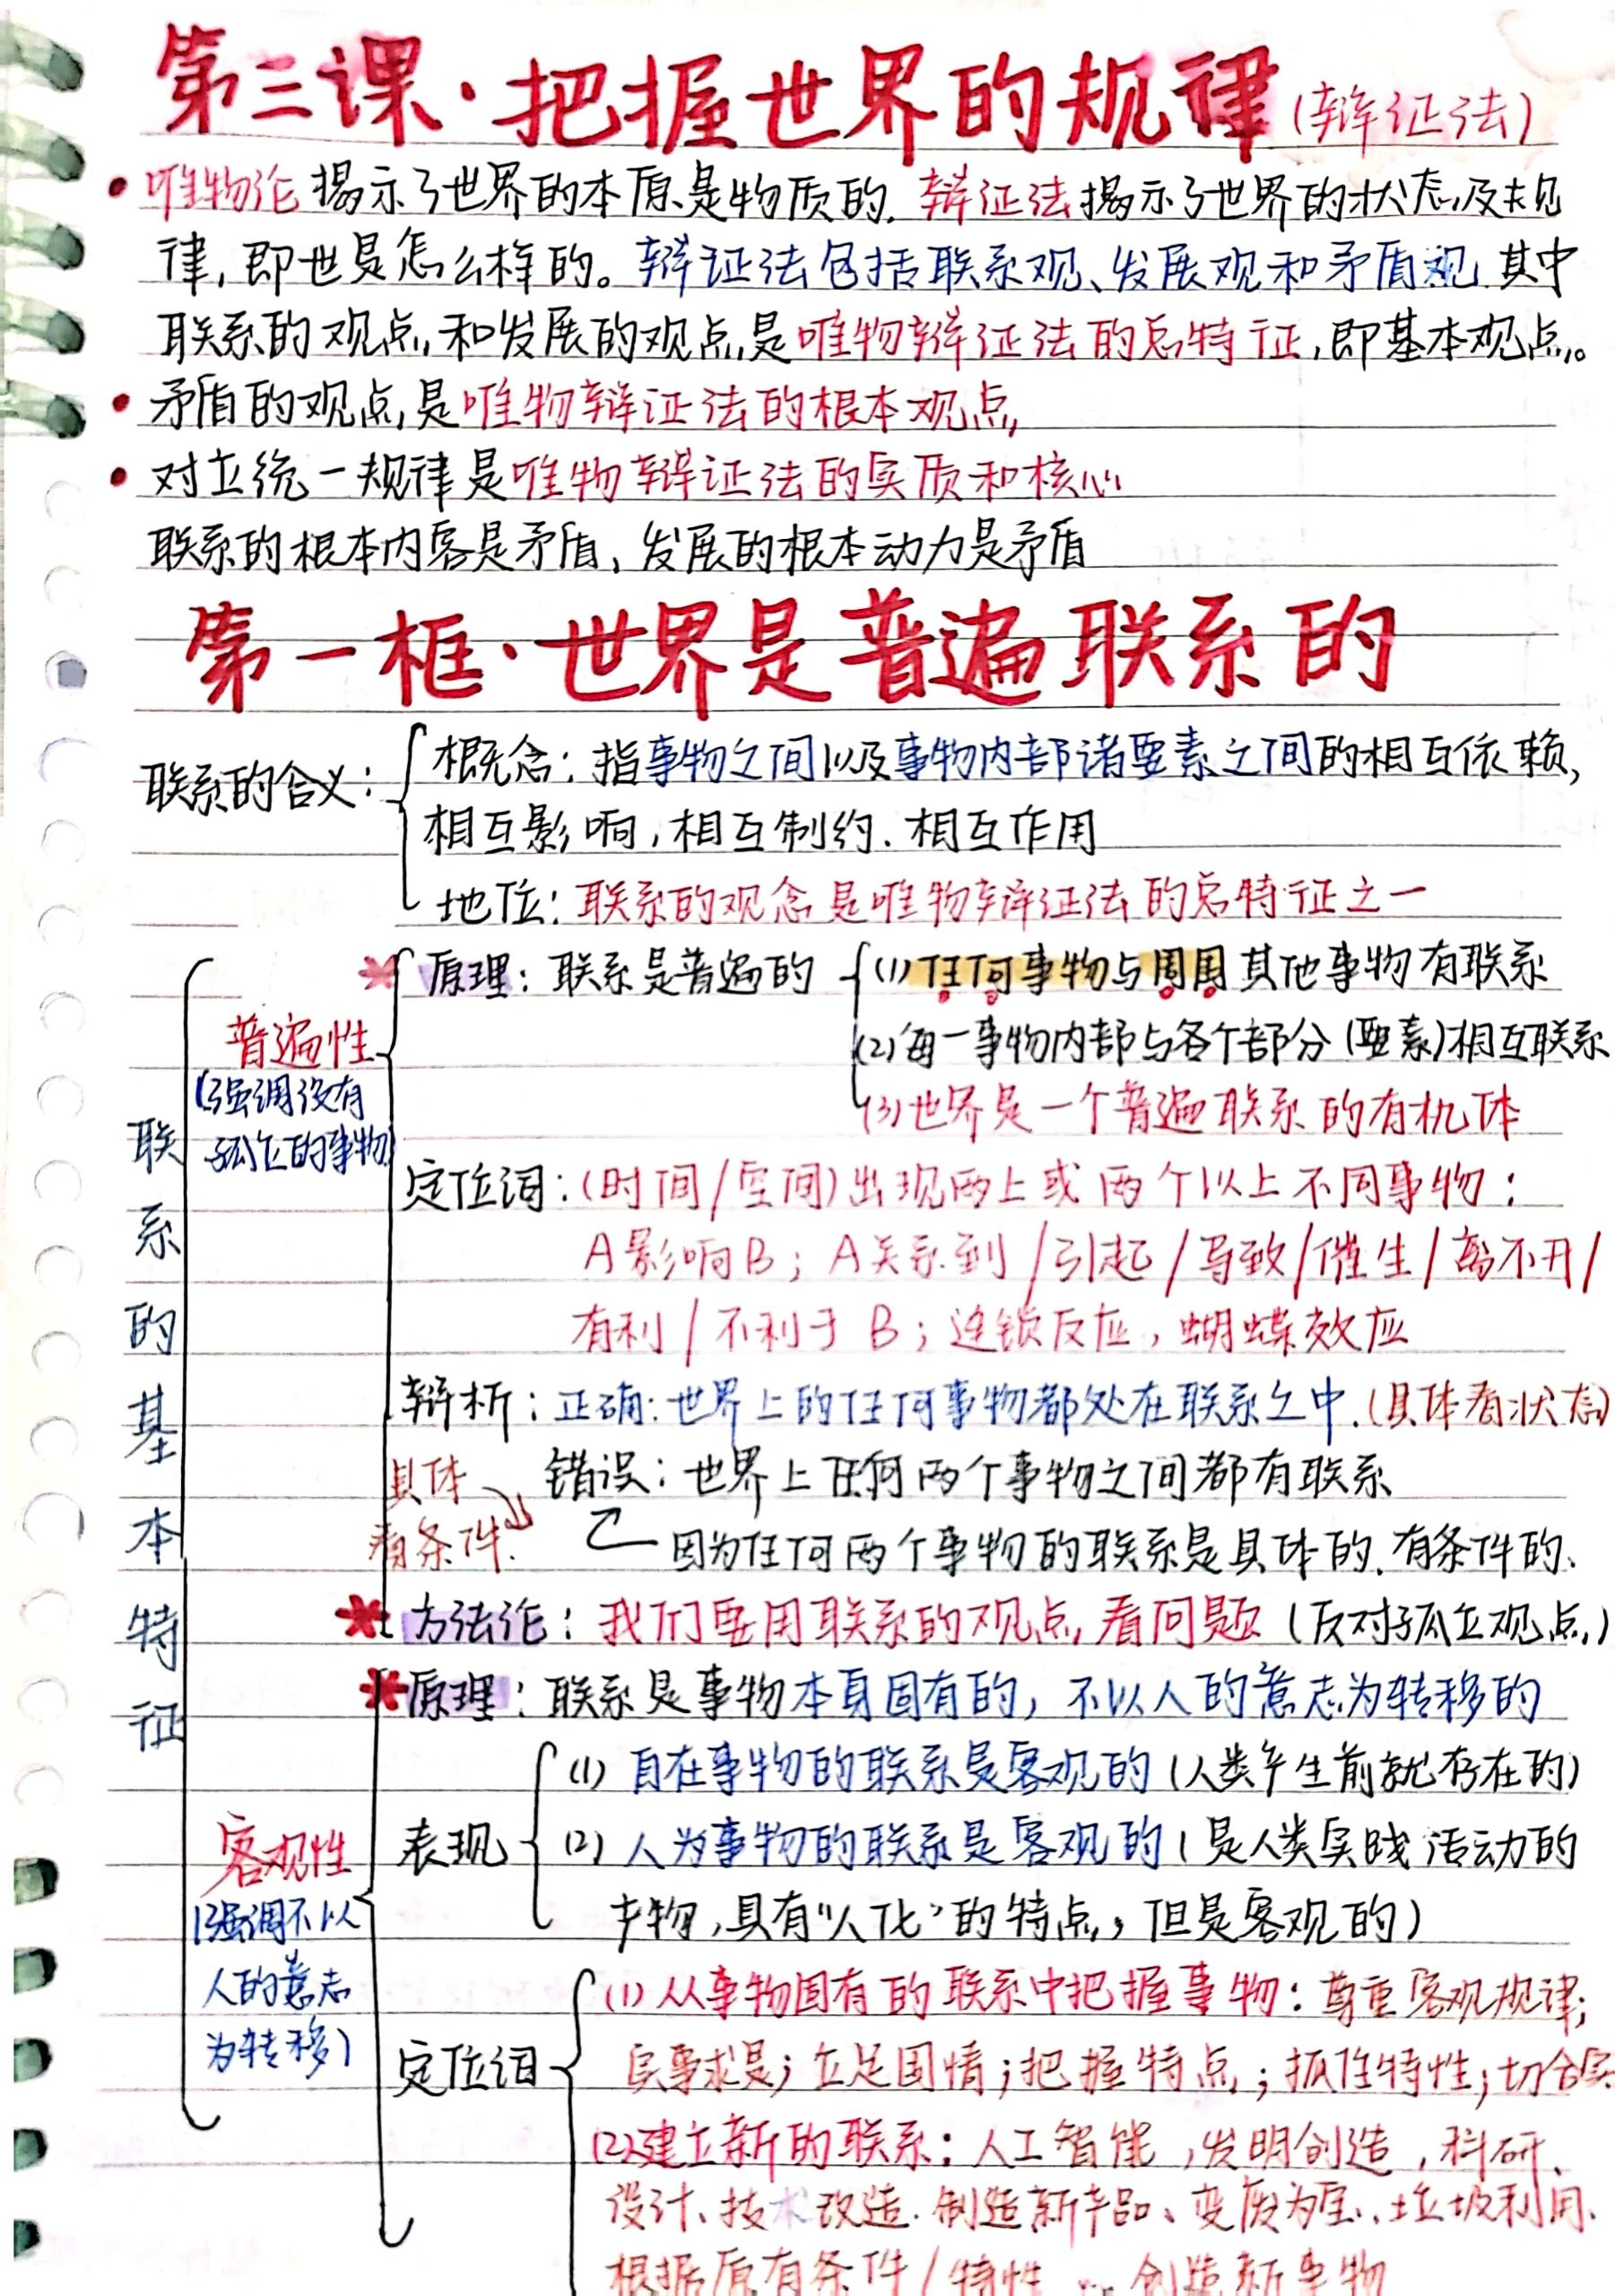 第三课·把握世界的规律(辩证法)
• 唯物论揭示了世界的本原是物质的.辩证法揭示了世界的状态及规
律,即世是怎么样的。辩证法包括联系观、发展观和矛盾观.其中
联系的观点和发展的观点是唯物辩证法的总特征,即基本观点。
• 矛盾的观点是唯物辩证法的根本观点
• 对立统一规律是唯物辩证法的实质和核心
联系的根本内容是矛盾,发展的根本动力是矛盾
第一框·世界是普遍联系的
联系的含义:
概念:指事物之间以及事物内部诸要素之间的相互依赖,
相互影响,相互制约.相互作用
地位:联系的观念是唯物辩证法的总特征之一
联系的基本特征
普遍性
(强调没有
孤立的事物)
原理:联系是普遍的
(1)任何事物与周围其他事物有联系
(2)每一事物内部与各个部分(要素)相互联系
(3)世界是一个普遍联系的有机体
定位词:(时间/空间)出现两上或两个以上不同事物:
A影响B;A关系到/引起/导致/催生/离不开/
有利/不利于B;连锁反应,蝴蝶效应
辩析:正确:世界上的任何事物都处在联系之中.(具体看状态)
错误:世界上任何两个事物之间都有联系
具体
看条件.
因为任何两个事物的联系是具体的.有条件的.
方法论:我们要用联系的观点看问题(反对孤立观点)
客观性
(强调不以
人的意志
为转移)
原理:联系是事物本身固有的,不以人的意志为转移的
表现
(1)自在事物的联系是客观的(人类产生前就存在的)
(2)人为事物的联系是客观的(是人类实践活动的
产物,具有“人化”的特点,但是客观的)
定位词
(1)从事物固有的联系中把握事物:尊重客观规律;
实事求是;立足国情;把握特点;抓住特性;切合实
(2)建立新的联系:人工智能,发明创造,科研、
设计、技术改造.制造新产品、变废为宝、垃圾利用、
根据原有条件/特性...创造新事物